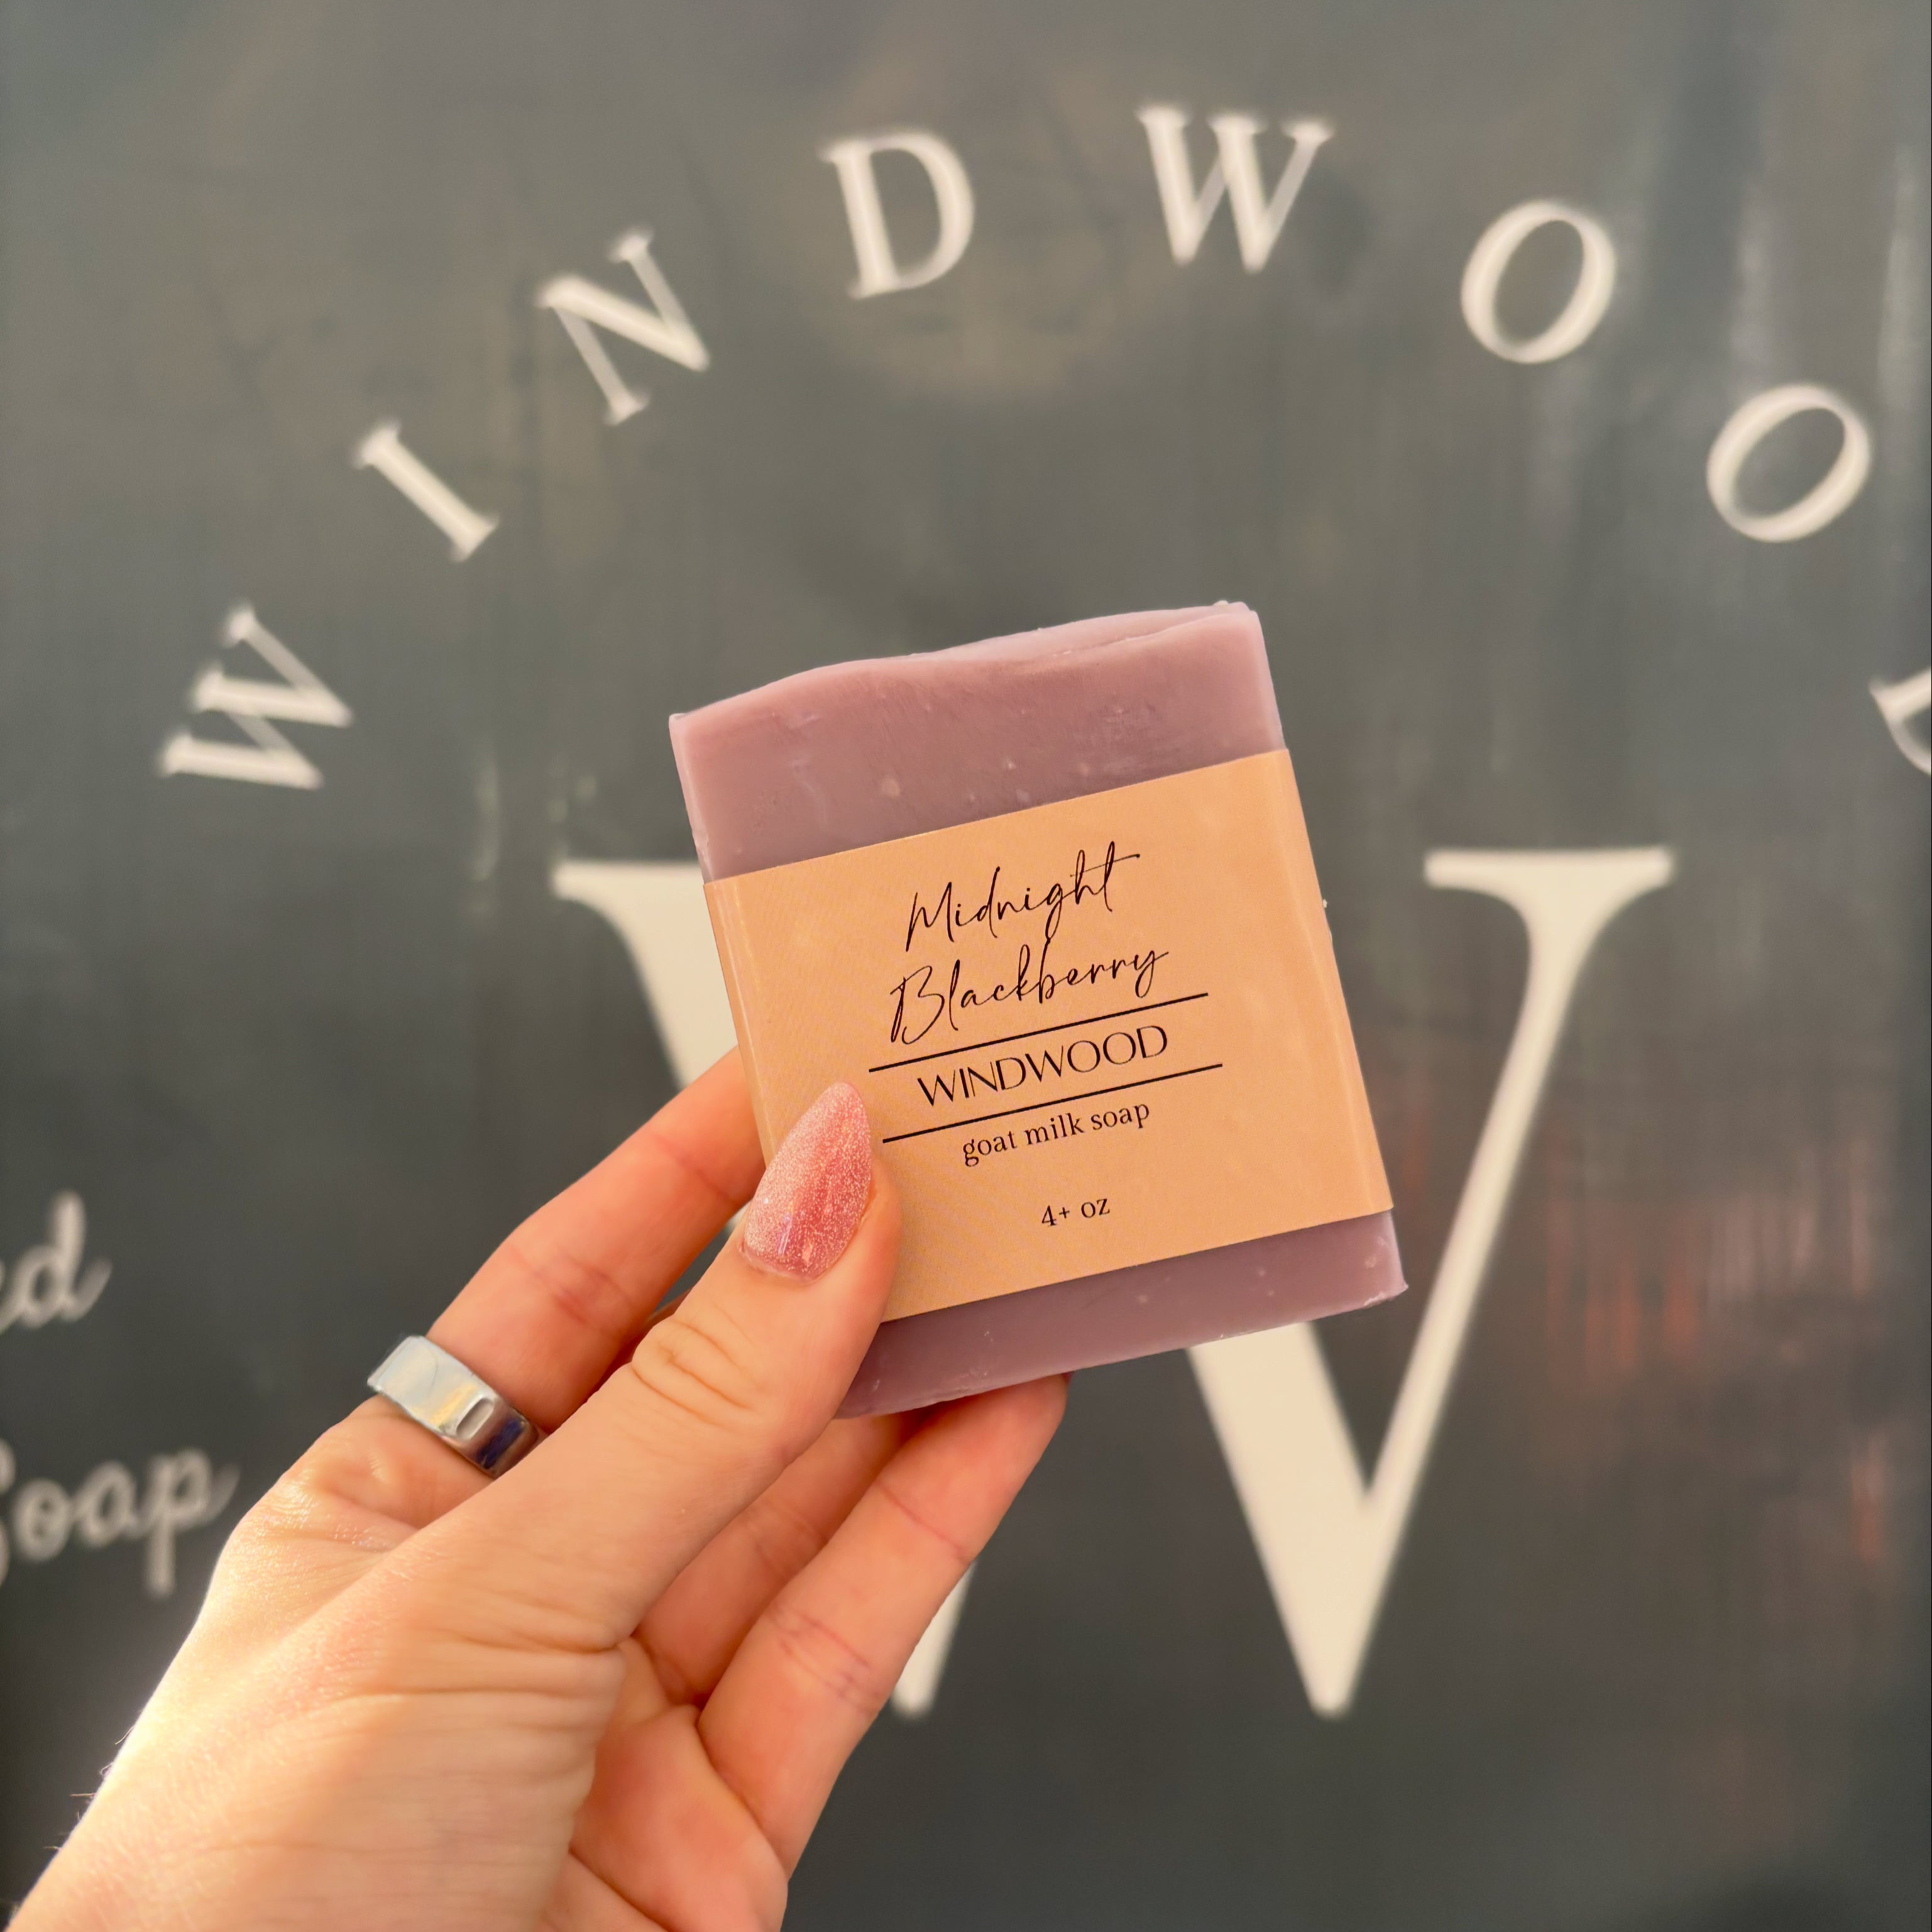 WINDWOOD
W
ed
Soap
Midnight
Blackberry
WINDWOOD
goat milk soap
4+ oz